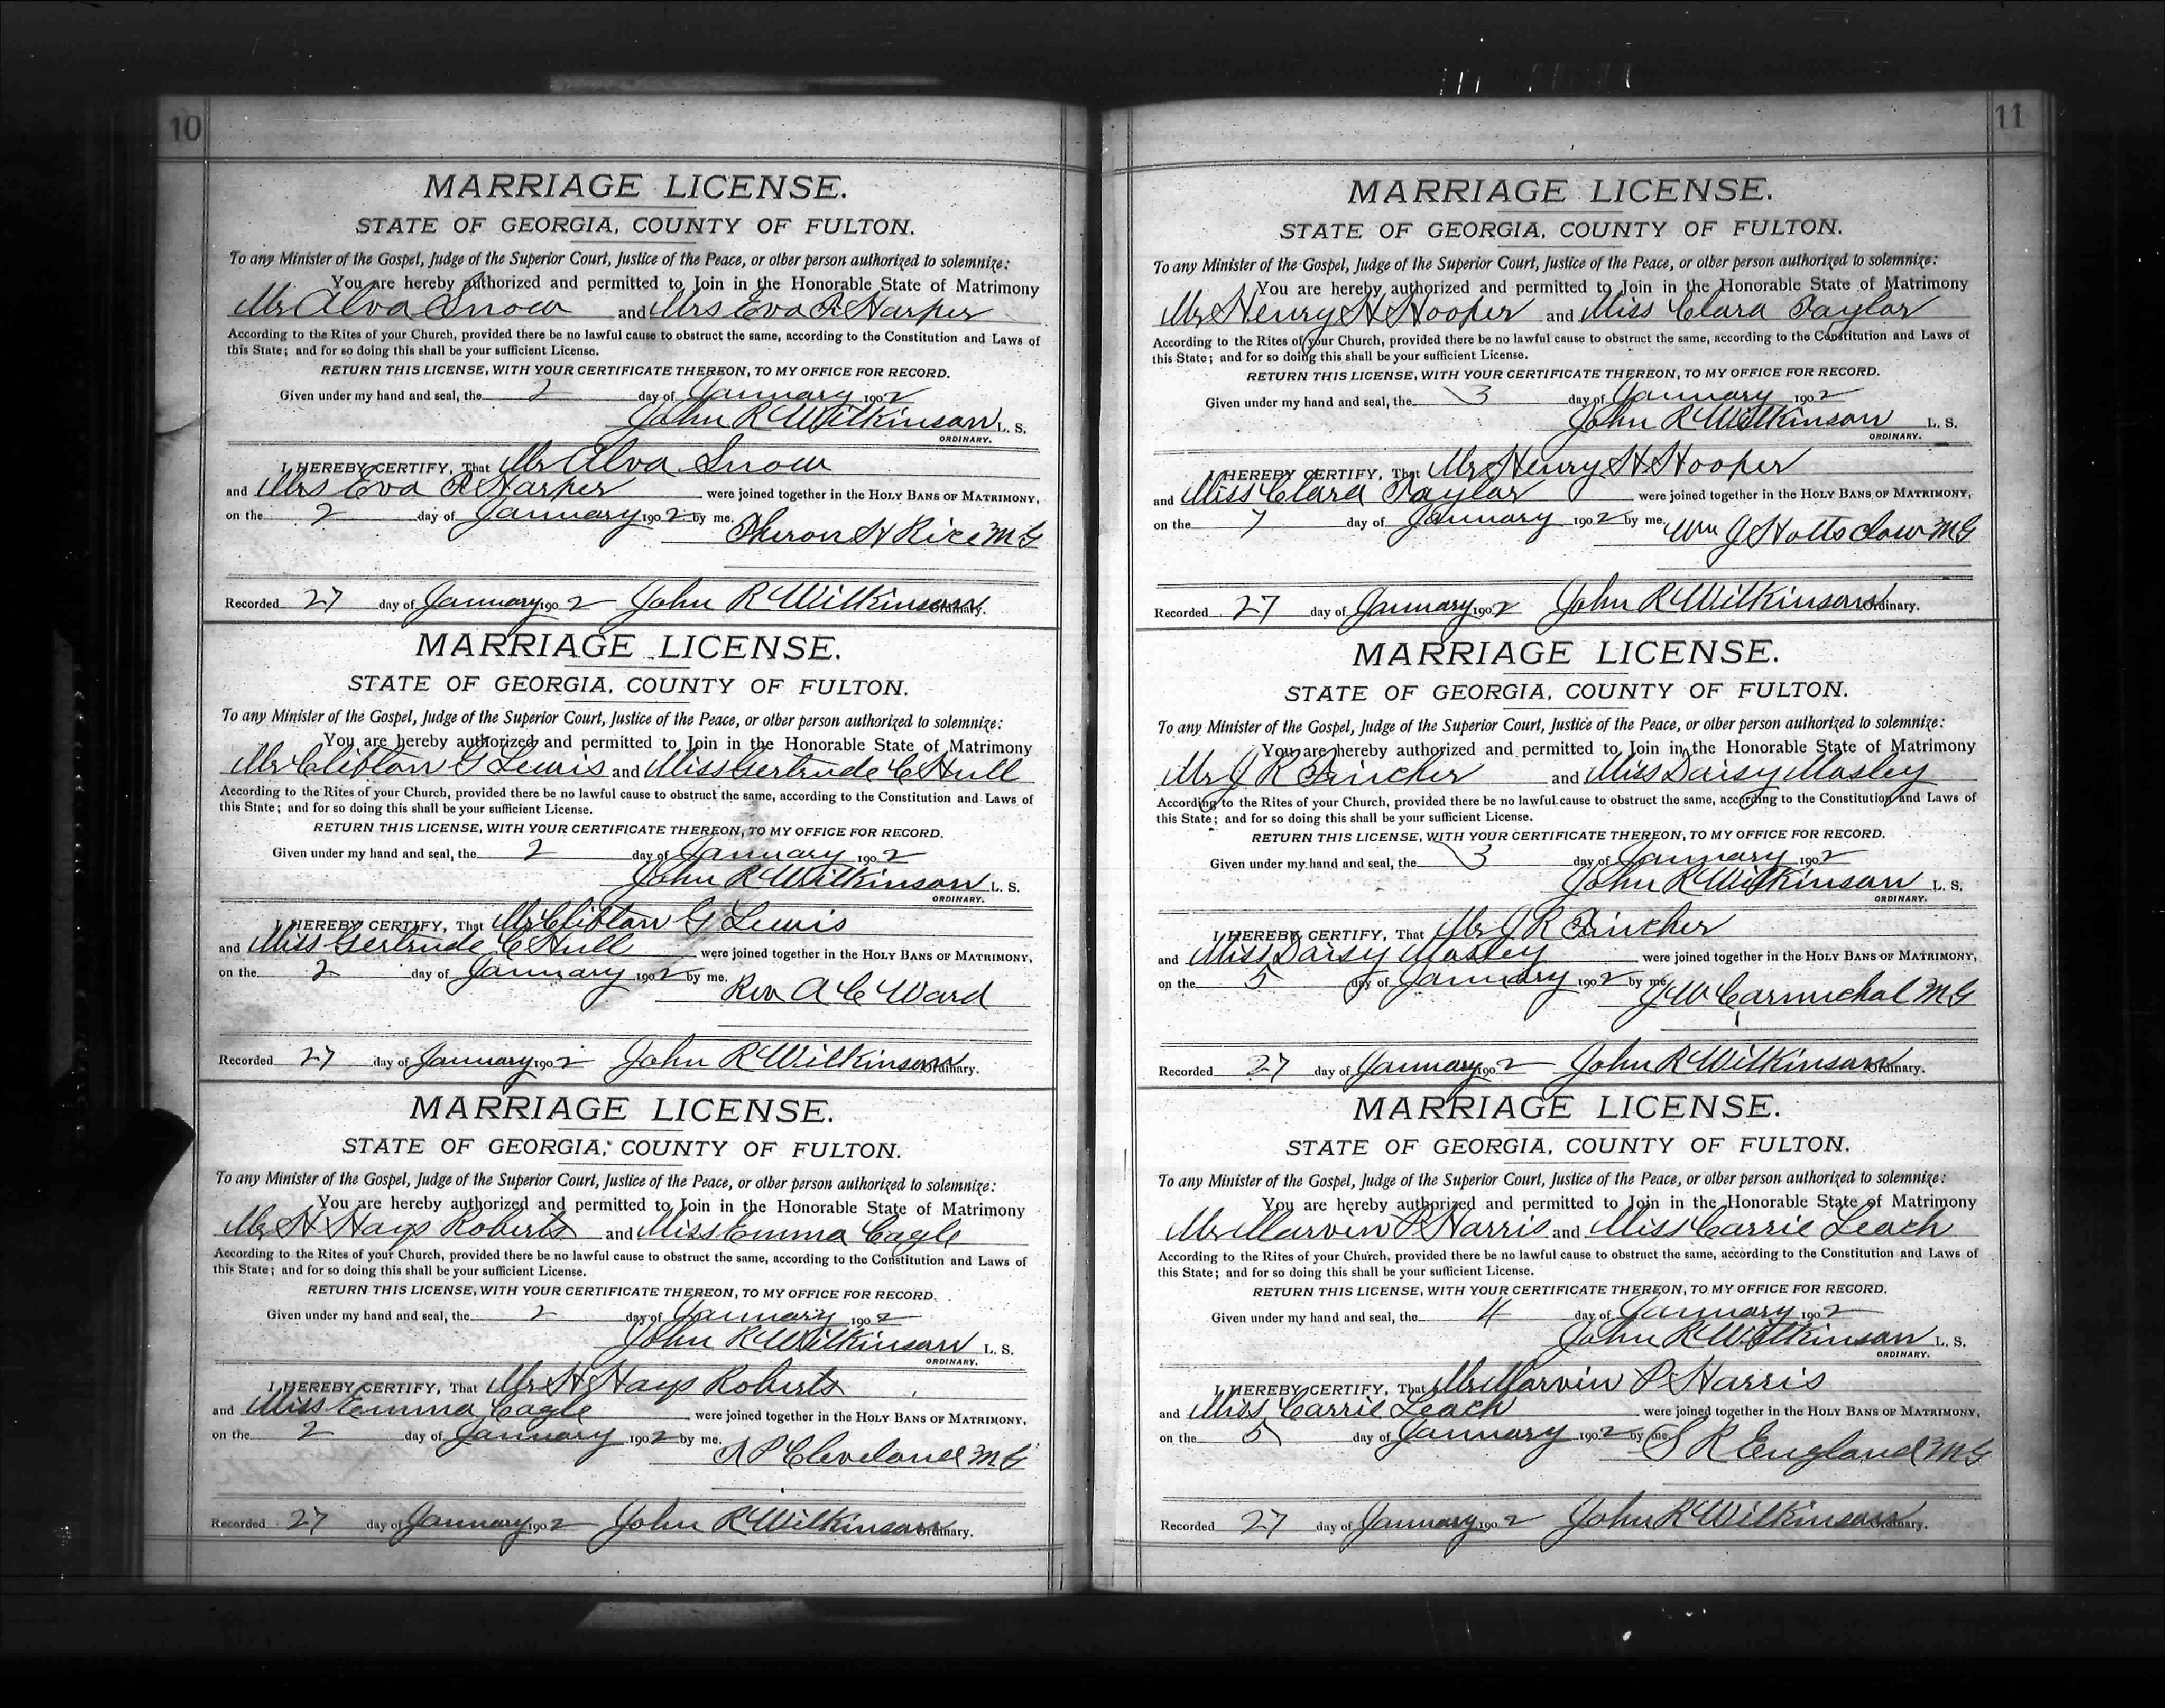 10
MARRIAGE LICENSE.
STATE OF GEORGIA, COUNTY OF FULTON.
To any Minister of the Gospel, Judge of the Superior Court, Justice of the Peace, or other person authorized to solemnize:
You are hereby authorized and permitted to Join in the Honorable State of Matrimony
Mr Alva Snow and Mrs Eva R Harper
According to the Rites of your Church, provided there be no lawful cause to obstruct the same, according to the Constitution and Laws of
this State; and for so doing this shall be your sufficient License.
RETURN THIS LICENSE, WITH YOUR CERTIFICATE THEREON, TO MY OFFICE FOR RECORD.
Given under my hand and seal, the 2 day of January 1902
John R Wilkinson L. S.
ORDINARY.
I HEREBY CERTIFY, That Mr Alva Snow
and Mrs Eva R Harper were joined together in the HOLY BANS OF MATRIMONY,
on the 2 day of January 1902 by me.
Theron H Rice MG
Recorded 27 day of January 1902 John R Wilkinson Ordinary.
MARRIAGE LICENSE.
STATE OF GEORGIA, COUNTY OF FULTON.
To any Minister of the Gospel, Judge of the Superior Court, Justice of the Peace, or other person authorized to solemnize:
You are hereby authorized and permitted to Join in the Honorable State of Matrimony
Mr Clifton G Lewis and Miss Gertrude C Hull
According to the Rites of your Church, provided there be no lawful cause to obstruct the same, according to the Constitution and Laws of
this State; and for so doing this shall be your sufficient License.
RETURN THIS LICENSE, WITH YOUR CERTIFICATE THEREON, TO MY OFFICE FOR RECORD.
Given under my hand and seal, the 2 day of January 1902
John R Wilkinson L. S.
ORDINARY.
I HEREBY CERTIFY, That Mr Clifton G Lewis
and Miss Gertrude C Hull were joined together in the HOLY BANS OF MATRIMONY,
on the 2 day of January 1902 by me.
Rev A C Ward
Recorded 27 day of January 1902 John R Wilkinson Ordinary.
MARRIAGE LICENSE.
STATE OF GEORGIA, COUNTY OF FULTON.
To any Minister of the Gospel, Judge of the Superior Court, Justice of the Peace, or other person authorized to solemnize:
You are hereby authorized and permitted to Join in the Honorable State of Matrimony
Mr H Hays Roberts and Miss Emma Cagle
According to the Rites of your Church, provided there be no lawful cause to obstruct the same, according to the Constitution and Laws of
this State; and for so doing this shall be your sufficient License.
RETURN THIS LICENSE, WITH YOUR CERTIFICATE THEREON, TO MY OFFICE FOR RECORD.
Given under my hand and seal, the 2 day of January 1902
John R Wilkinson L. S.
ORDINARY.
I HEREBY CERTIFY, That Mr H Hays Roberts
and Miss Emma Cagle were joined together in the HOLY BANS OF MATRIMONY,
on the 2 day of January 1902 by me.
P Cleveland MG
Recorded 27 day of January 1902 John R Wilkinson Ordinary.
11
MARRIAGE LICENSE.
STATE OF GEORGIA, COUNTY OF FULTON.
To any Minister of the Gospel, Judge of the Superior Court, Justice of the Peace, or other person authorized to solemnize:
You are hereby authorized and permitted to Join in the Honorable State of Matrimony
Mr Henry H Hooper and Miss Clara Taylor
According to the Rites of your Church, provided there be no lawful cause to obstruct the same, according to the Constitution and Laws of
this State; and for so doing this shall be your sufficient License.
RETURN THIS LICENSE, WITH YOUR CERTIFICATE THEREON, TO MY OFFICE FOR RECORD.
Given under my hand and seal, the 3 day of January 1902
John R Wilkinson L. S.
ORDINARY.
I HEREBY CERTIFY, That Mr Henry H Hooper
and Miss Clara Taylor were joined together in the HOLY BANS OF MATRIMONY,
on the 7 day of January 1902 by me.
Wm J Holtsclaw MG
Recorded 27 day of January 1902 John R Wilkinson Ordinary.
MARRIAGE LICENSE.
STATE OF GEORGIA, COUNTY OF FULTON.
To any Minister of the Gospel, Judge of the Superior Court, Justice of the Peace, or other person authorized to solemnize:
You are hereby authorized and permitted to Join in the Honorable State of Matrimony
Mr J R Fincher and Miss Daisy Mosley
According to the Rites of your Church, provided there be no lawful cause to obstruct the same, according to the Constitution and Laws of
this State; and for so doing this shall be your sufficient License.
RETURN THIS LICENSE, WITH YOUR CERTIFICATE THEREON, TO MY OFFICE FOR RECORD.
Given under my hand and seal, the 3 day of January 1902
John R Wilkinson L. S.
ORDINARY.
I HEREBY CERTIFY, That Mr J R Fincher
and Miss Daisy Mosley were joined together in the HOLY BANS OF MATRIMONY,
on the 5 day of January 1902 by me.
J W Carmichal MG
Recorded 27 day of January 1902 John R Wilkinson Ordinary.
MARRIAGE LICENSE.
STATE OF GEORGIA, COUNTY OF FULTON.
To any Minister of the Gospel, Judge of the Superior Court, Justice of the Peace, or other person authorized to solemnize:
You are hereby authorized and permitted to Join in the Honorable State of Matrimony
Mr Marvin P Harris and Miss Carrie Leach
According to the Rites of your Church, provided there be no lawful cause to obstruct the same, according to the Constitution and Laws of
this State; and for so doing this shall be your sufficient License.
RETURN THIS LICENSE, WITH YOUR CERTIFICATE THEREON, TO MY OFFICE FOR RECORD.
Given under my hand and seal, the 4 day of January 1902
John R Wilkinson L. S.
ORDINARY.
I HEREBY CERTIFY, That Mr Marvin P Harris
and Miss Carrie Leach were joined together in the HOLY BANS OF MATRIMONY,
on the 5 day of January 1902 by me.
S R England MG
Recorded 27 day of January 1902 John R Wilkinson Ordinary.